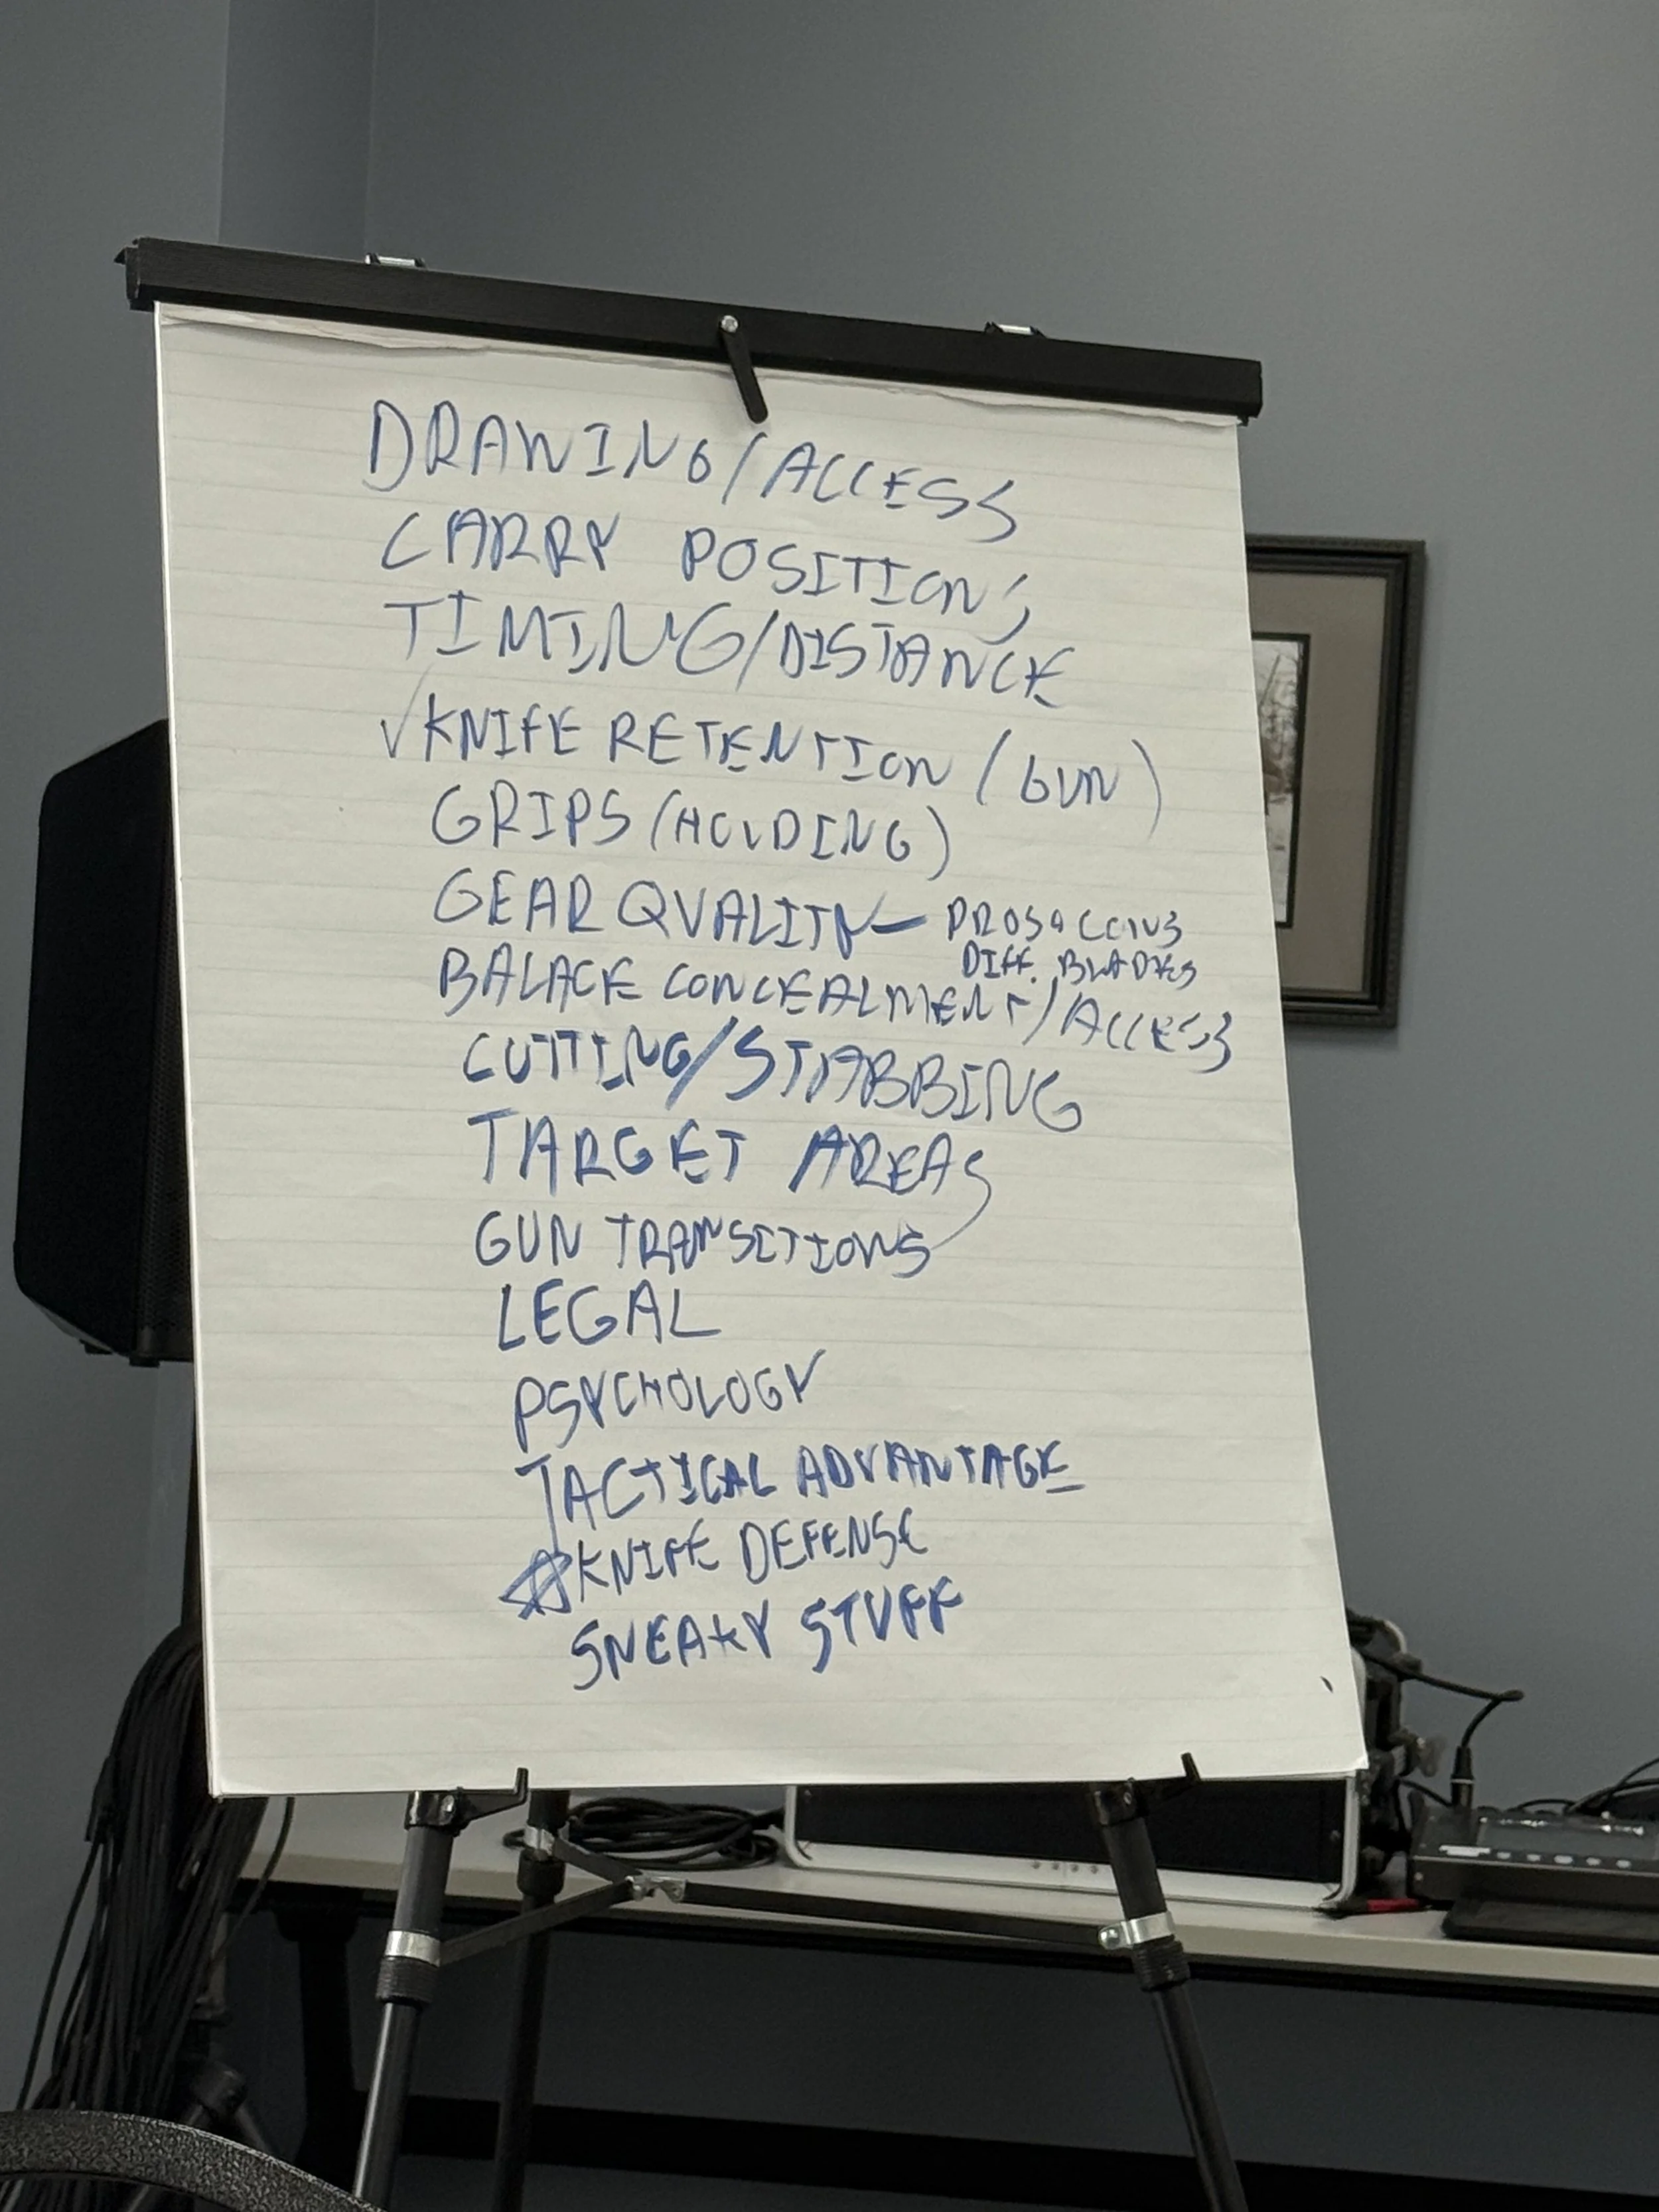 DRAWING/ACCESS
CARRY POSITIONS
TIMING/DISTANCE
✓KNIFE RETENTION (GUN)
GRIPS (HOLDING)
GEAR QUALITY— PROS & CONS
DIFF. BLADES
BALACE CONCEALMENT/ACCESS
CUTTING/STABBING
TARGET AREAS
GUN TRANSITIONS
LEGAL
PSYCHOLOGY
TACTICAL ADVANTAGE
☆KNIFE DEFENSE
SNEAKY STUFF